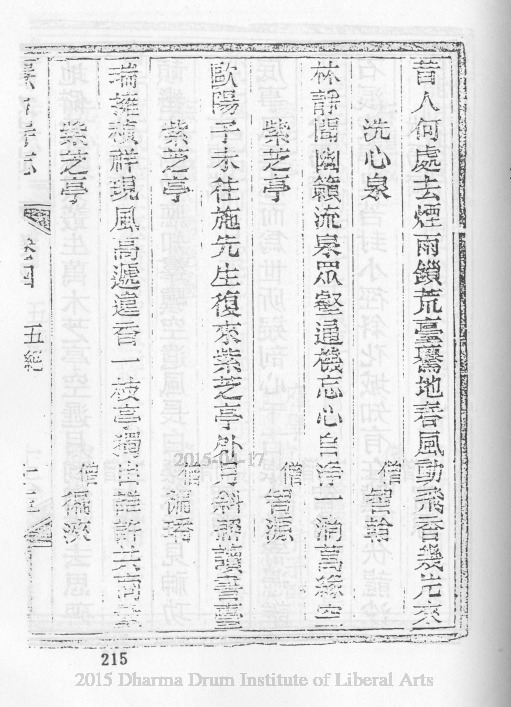 昔人何處去煙雨鎖荒臺瑤地春風動飛香幾片來
洗心泉 僧智翰
林靜聞幽籟流泉眾壑通機忘心自淨一滴萬緣空
紫芝亭 僧智源
歐陽子未往施先生復來紫芝亭外月斜照讀書臺
紫芝亭 僧
瑞擁積祥現風高遞遠香一枝亭獨出誰許共商量
紫芝亭 僧
寺志 卷四 五絕
215
2015-01-17
2015 Dharma Drum Institute of Liberal Arts